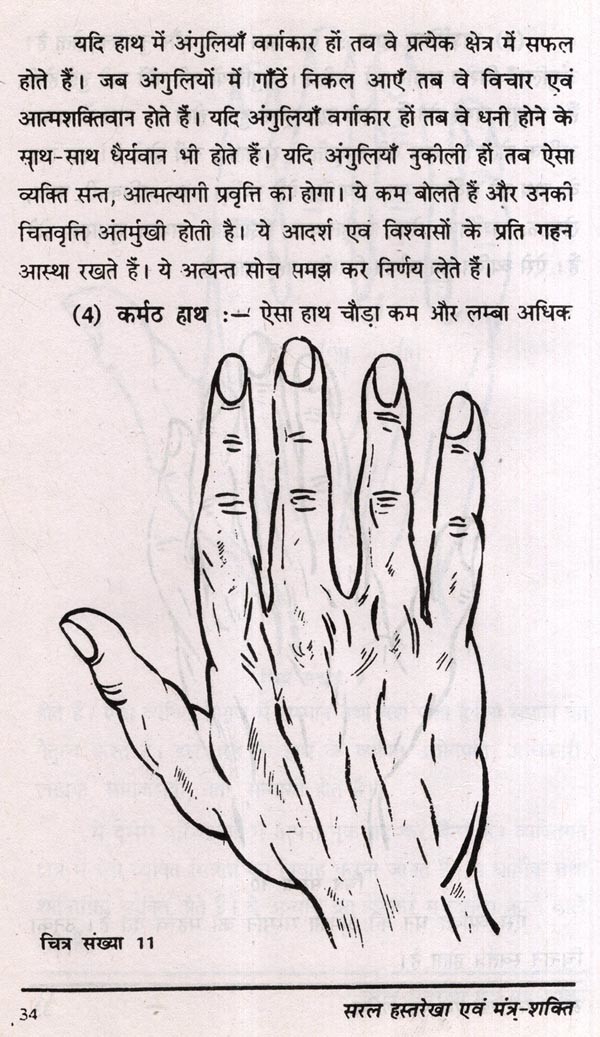 यदि हाथ में अंगुलियाँ वर्गाकार हों तब वे प्रत्येक क्षेत्र में सफल
होते हैं। जब अंगुलियों में गाँठें निकल आएँ तब वे विचार एवं
आत्मशक्तिवान होते हैं। यदि अंगुलियाँ वर्गाकार हों तब वे धनी होने के
साथ-साथ धैर्यवान भी होते हैं। यदि अंगुलियाँ नुकीली हों तब ऐसा
व्यक्ति सन्त, आत्मत्यागी प्रवृत्ति का होगा। ये कम बोलते हैं और उनकी
चित्तवृत्ति अंतर्मुखी होती है। ये आदर्श एवं विश्वासों के प्रति गहन
आस्था रखते हैं। ये अत्यन्त सोच समझ कर निर्णय लेते हैं।
(4) कर्मठ हाथ :— ऐसा हाथ चौड़ा कम और लम्बा अधिक
चित्र संख्या 11
34 सरल हस्तरेखा एवं मंत्र-शक्ति